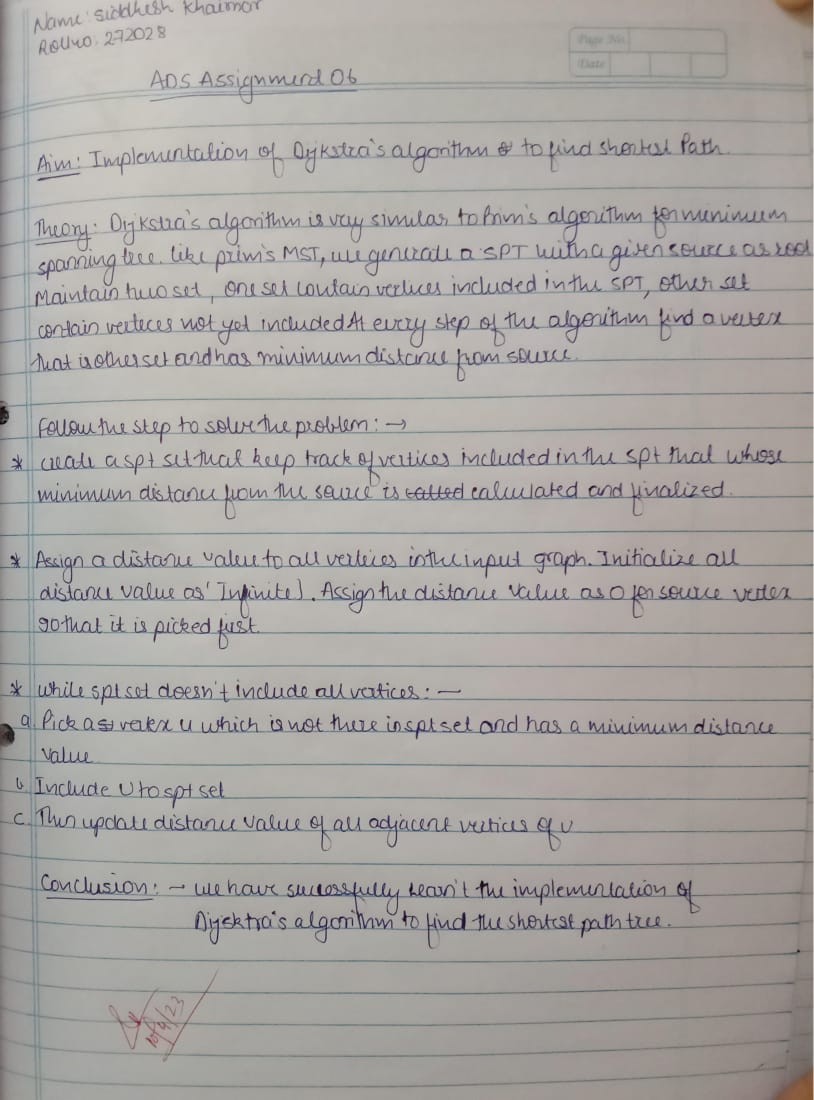 Name: Siddhesh Khairnar
Rollno: 272028
Page No.
Date
ADS Assignment 06
Aim: Implementation of Dijkstra's algorithm to find shortest Path.
Theory: Dijkstra's algorithm is very similar to Prim's algorithm for minimum
spanning tree. like prim's MST, we generate a SPT with a given source as root
Maintain two set, one set contain vertices included in the SPT, other set
contain verteces not yet included At every step of the algorithm find a vertex
that is other set and has minimum distance from source.
Follow the step to solve the problem: →
* create a spt set that keep track of vertices included in the spt that whose
minimum distance from the source is calculated and finalized.
* Assign a distance value to all vertices in the input graph. Initialize all
distance value as 'Infinite). Assign the distance value as 0 for source vertex
so that it is picked first.
* while spt set doesn't include all vertices: —
a. Pick a vertex u which is not there in spt set and has a minimum distance
value
b Include U to spt set
c. Then update distance value of all adjacent vertices of u
Conclusion: - we have successfully learn't the implementation of
Dijektra's algorithm to find the shortest path tree.
10/4/23